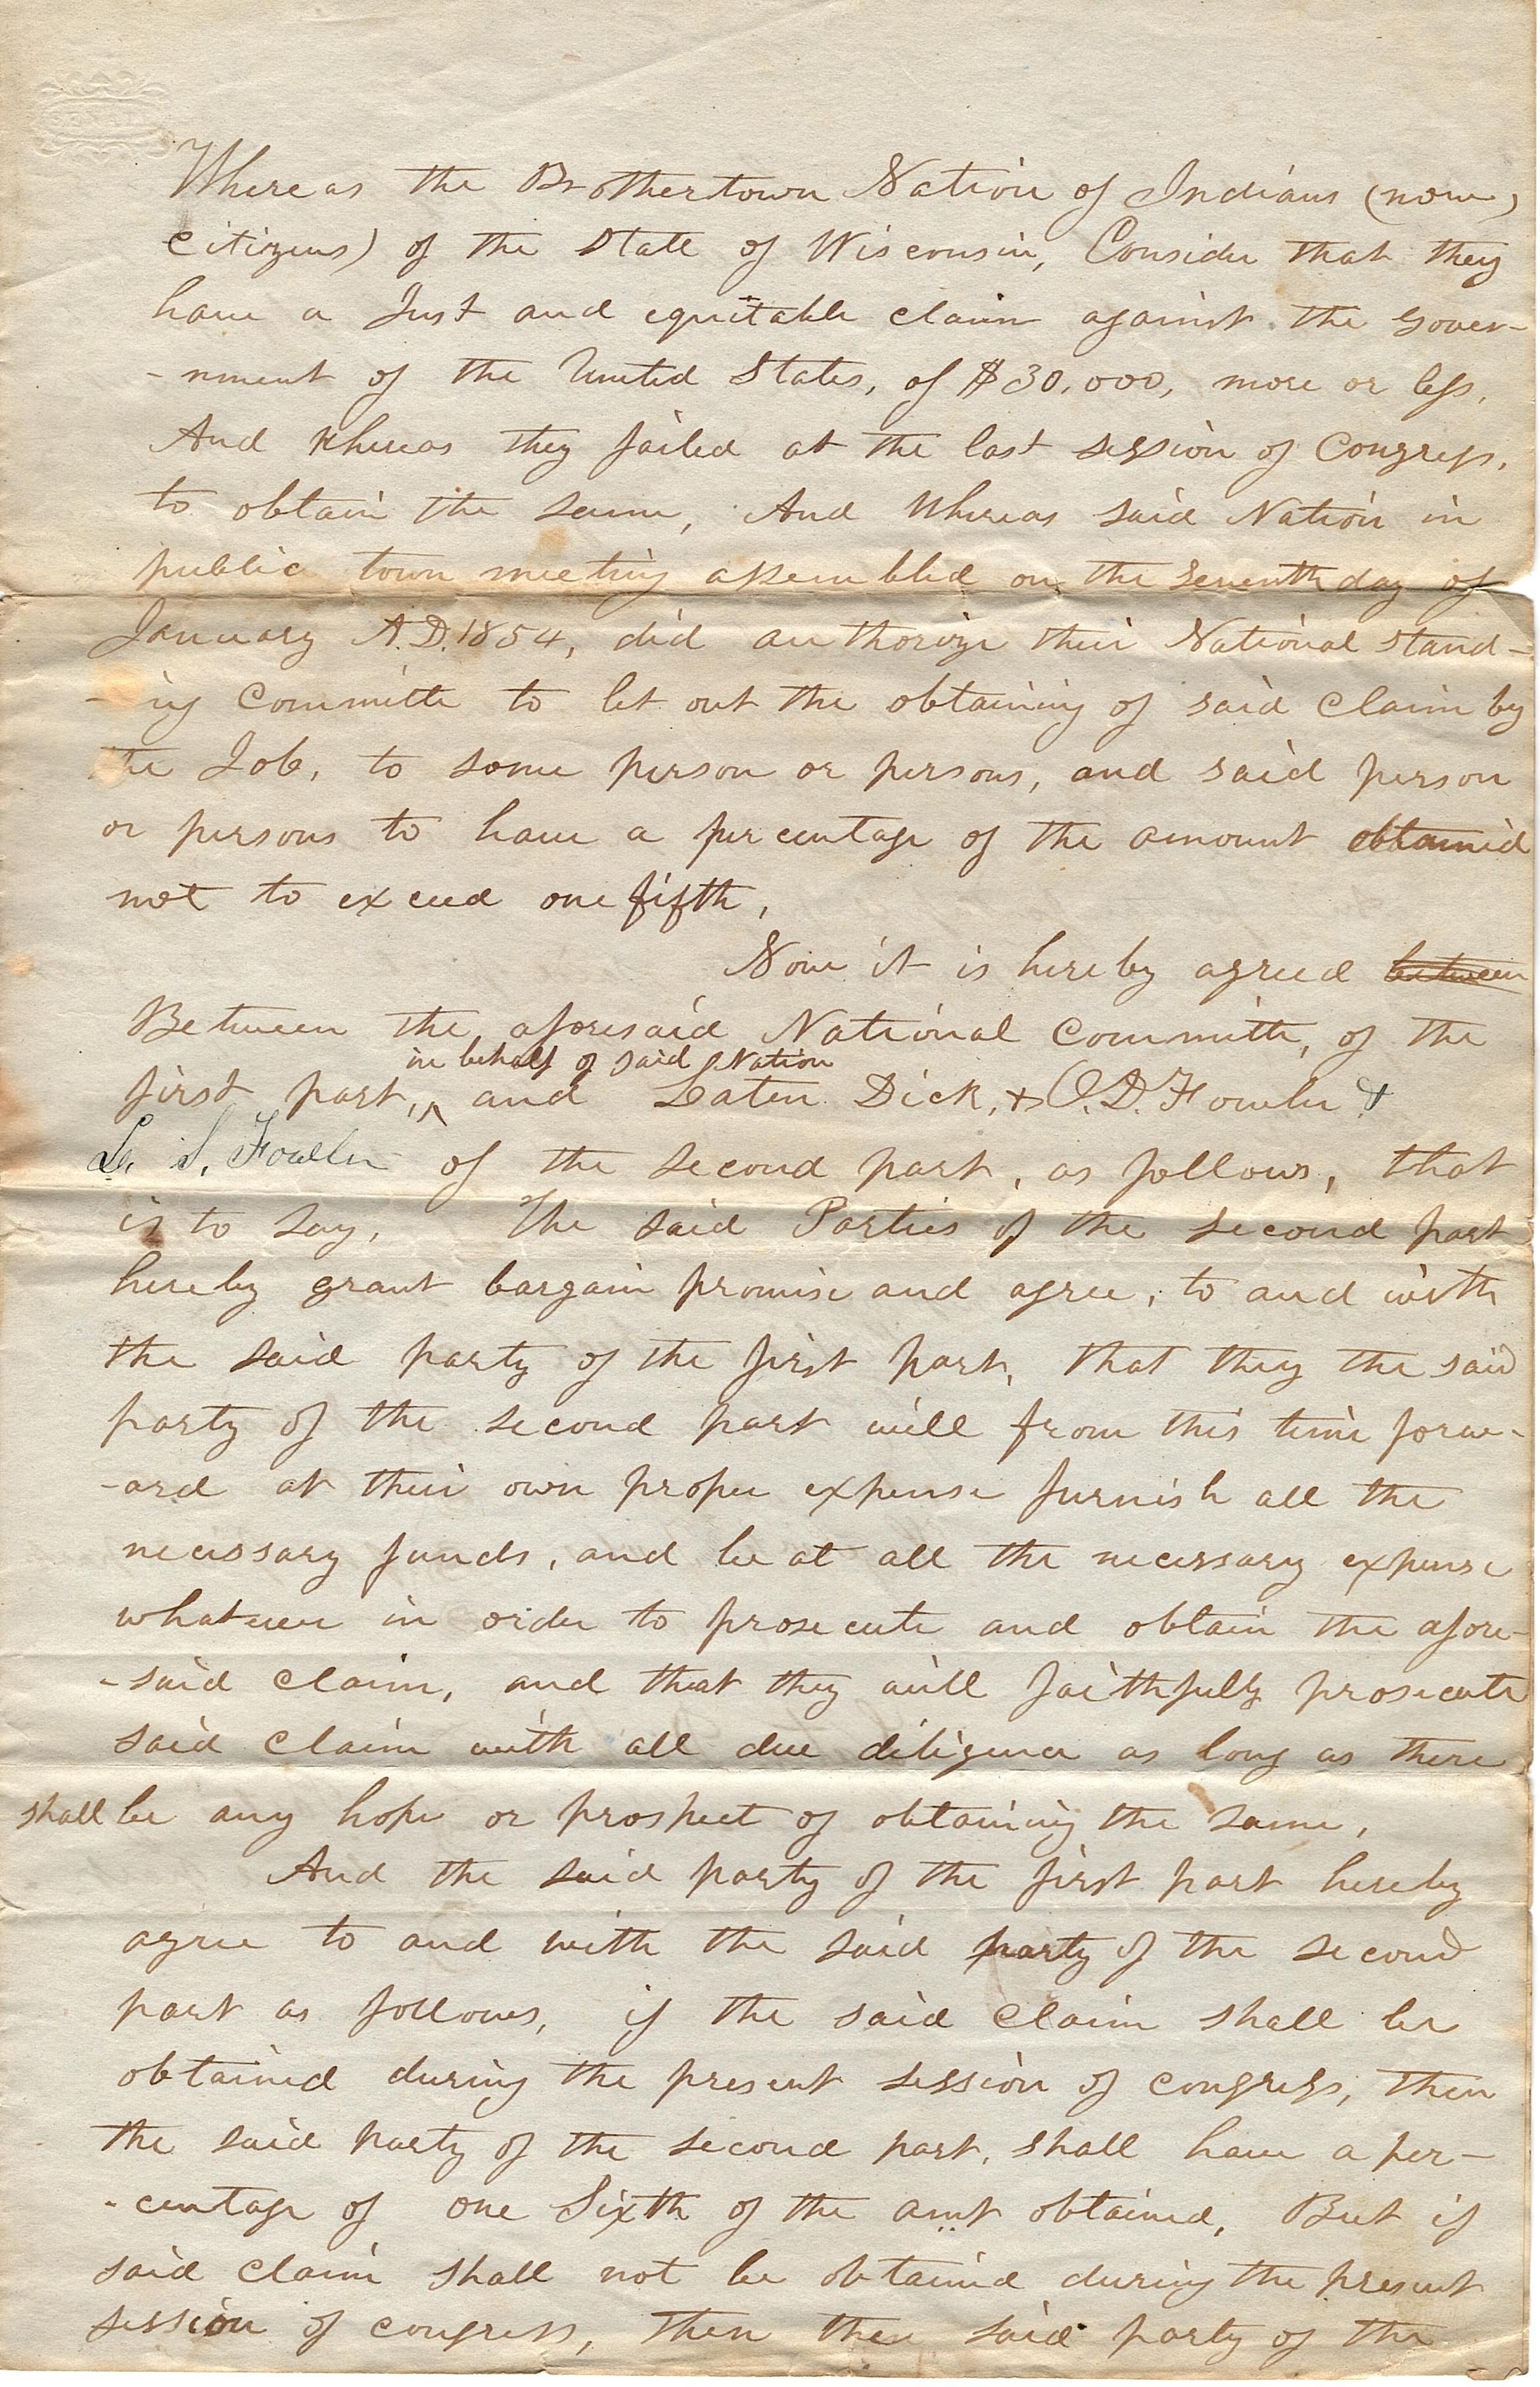 Whereas the Brothertown Nation of Indians (now,
citizens) of the State of Wisconsin, Consider that they
have a Just and equitable claim against the Gover-
-nment of the United States, of $30,000, more or less,
And Whereas they failed at the last session of Congress,
to obtain the same, And Whereas said Nation in
public town meeting assembled on the seventh day of
January A.D. 1854, did authorize their National stand-
-ing Committe to let out the obtaining of said claim by
the Job, to some person or persons, and said person
or persons to have a percentage of the amount obtained
not to exceed one fifth,
Now it is hereby agreed between
Between the aforesaid National Committe, of the
in behalf of said Nation
first part, ^ and Laten Dick, & O. D. Fowler &
L. S. Fowler of the second part, as follows, that
is to say, The said Parties of the second part
hereby grant bargain promise and agree, to and with
the said party of the first part, that they the said
party of the second part will from this time forw-
-ard at their own proper expense furnish all the
necessary funds, and be at all the necessary expense
whatever in order to prosecute and obtain the afore-
-said claim, and that they will faithfully prosecute
said claim with all due diligence as long as there
shall be any hope or prospect of obtaining the same,
And the said party of the first part hereby
agree to and with the said party of the second
part as follows, if the said claim shall be
obtained during the present session of congress, then
the said party of the second part, shall have a per-
-centage of one Sixth of the amt obtained, But if
said claim shall not be obtained during the present
session of congress, then the said party of the